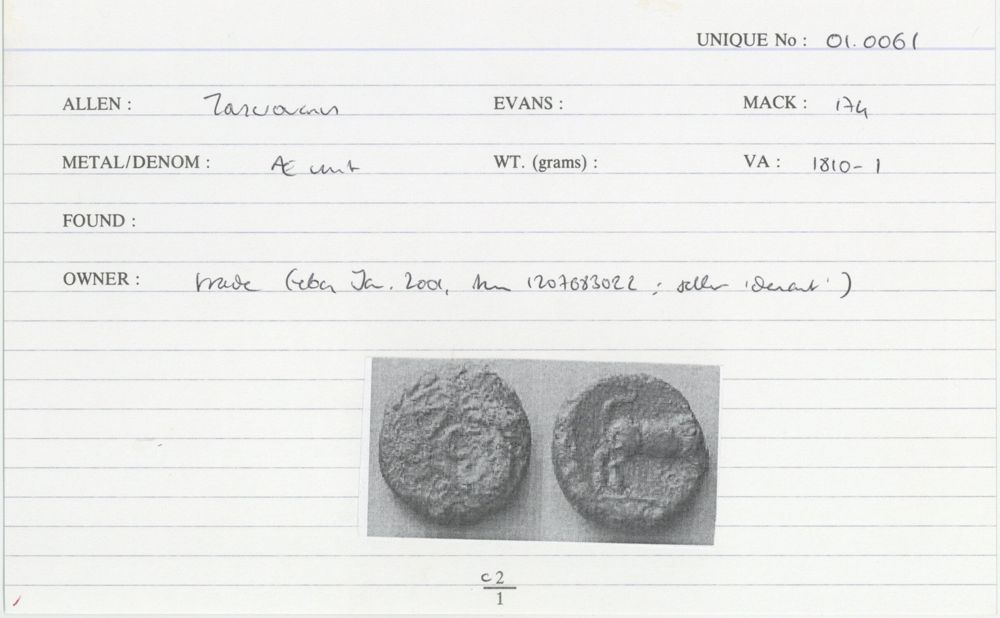 UNIQUE No : 01.0061
ALLEN : Tasciovanus EVANS : MACK : 174
METAL/DENOM : Æ unit WT. (grams) : VA : 1810-1
FOUND :
OWNER : trade (eBay Jan. 2001, item 1207683022 ; seller ' ')
c2
1